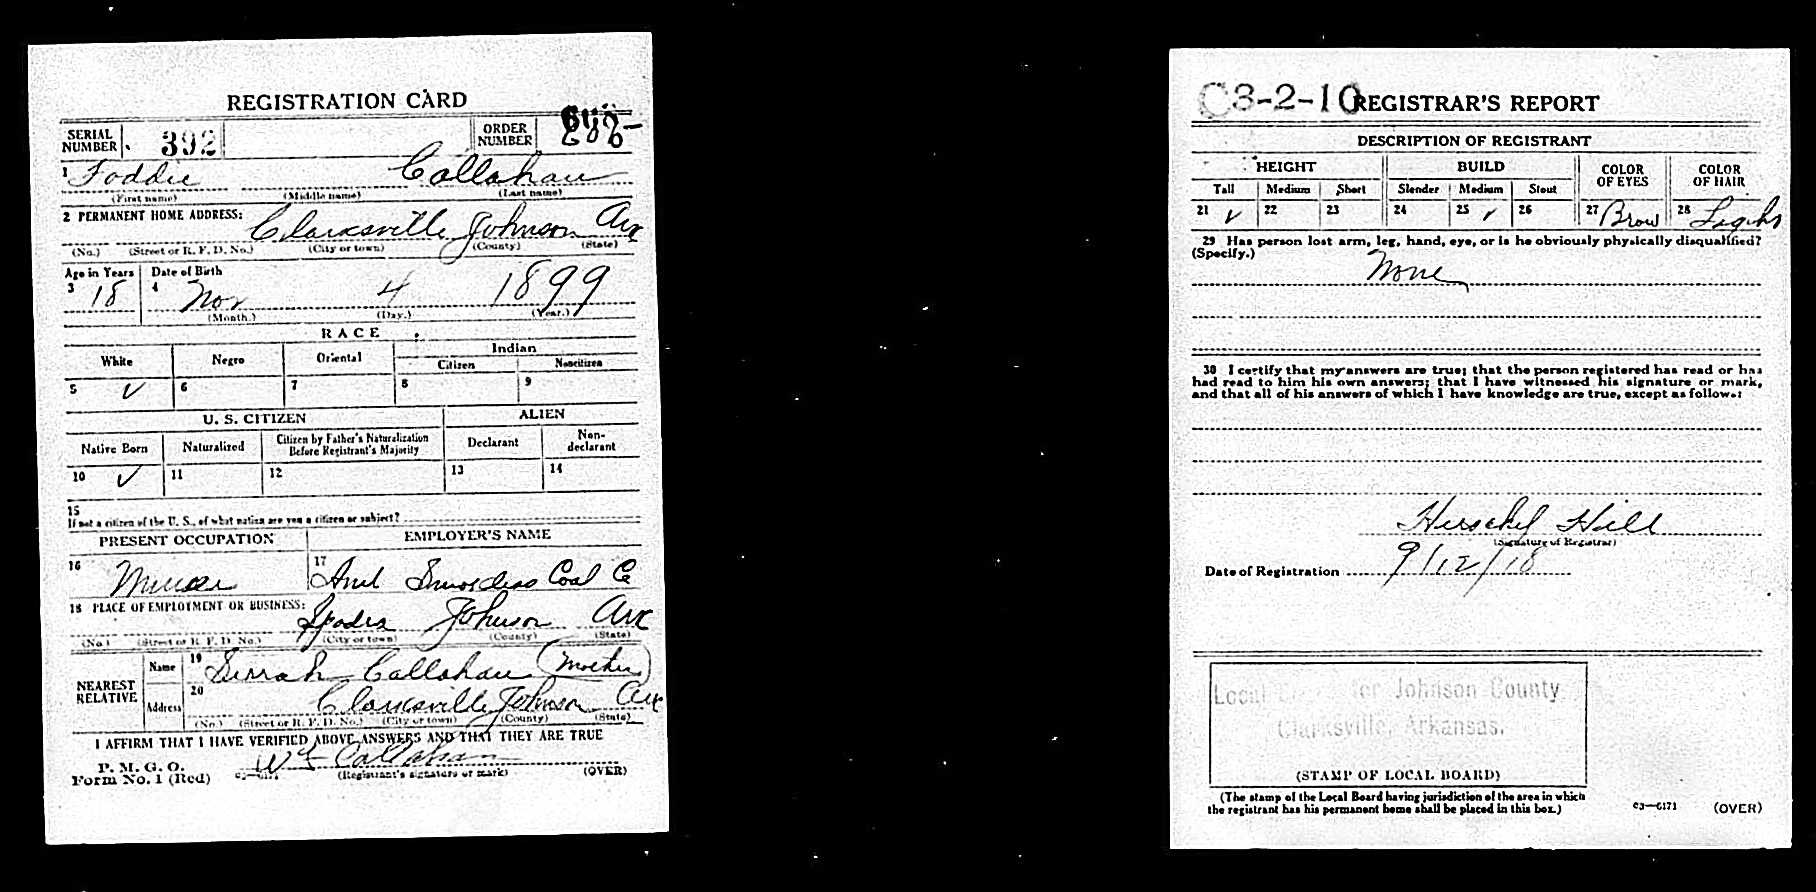 REGISTRATION CARD
SERIAL NUMBER 392 ORDER NUMBER
1 Foddie Callahan
(First name) (Middle name) (Last name)
2 PERMANENT HOME ADDRESS: Clarksville Johnson Ark
(No.) (Street or R. F. D. No.) (City or town) (County) (State)
Age in Years Date of Birth
3 18 4 Nov 4 1899
(Month.) (Day.) (Year.)
RACE
White Negro Oriental Indian
Citizen Noncitizen
5 ✓ 6 7 8 9
U. S. CITIZEN ALIEN
Native Born Naturalized Citizen by Father's Naturalization Before Registrant's Majority Declarant Non-declarant
10 ✓ 11 12 13 14
15
If not a citizen of the U. S., of what nation are you a citizen or subject?
PRESENT OCCUPATION EMPLOYER'S NAME
16 Miner 17 Coal Co
18 PLACE OF EMPLOYMENT OR BUSINESS: Spadra Johnson Ark
(No.) (Street or R. F. D. No.) (City or town) (County) (State)
NEAREST RELATIVE Name 19 Serrah Callahan (Mother)
Address 20 Clarksville Johnson Ark
(No.) (Street or R. F. D. No.) (City or town) (County) (State)
I AFFIRM THAT I HAVE VERIFIED ABOVE ANSWERS AND THAT THEY ARE TRUE
P. M. G. O.
Form No. 1 (Red) C3—6171 Callahan
(Registrant's signature or mark) (OVER)
C3-2-10 REGISTRAR'S REPORT
DESCRIPTION OF REGISTRANT
HEIGHT BUILD COLOR OF EYES COLOR OF HAIR
Tall Medium Short Slender Medium Stout
21 ✓ 22 23 24 25 ✓ 26 27 Brow 28
29 Has person lost arm, leg, hand, eye, or is he obviously physically disqualified?
(Specify.) None
30 I certify that my answers are true; that the person registered has read or has
had read to him his own answers; that I have witnessed his signature or mark,
and that all of his answers of which I have knowledge are true, except as follows:
Herschel Hill
(Signature of Registrar)
Date of Registration 9/12/18
Local Board for Johnson County
Clarksville, Arkansas.
(STAMP OF LOCAL BOARD)
(The stamp of the Local Board having jurisdiction of the area in which
the registrant has his permanent home shall be placed in this box.)
C3—6171 (OVER)